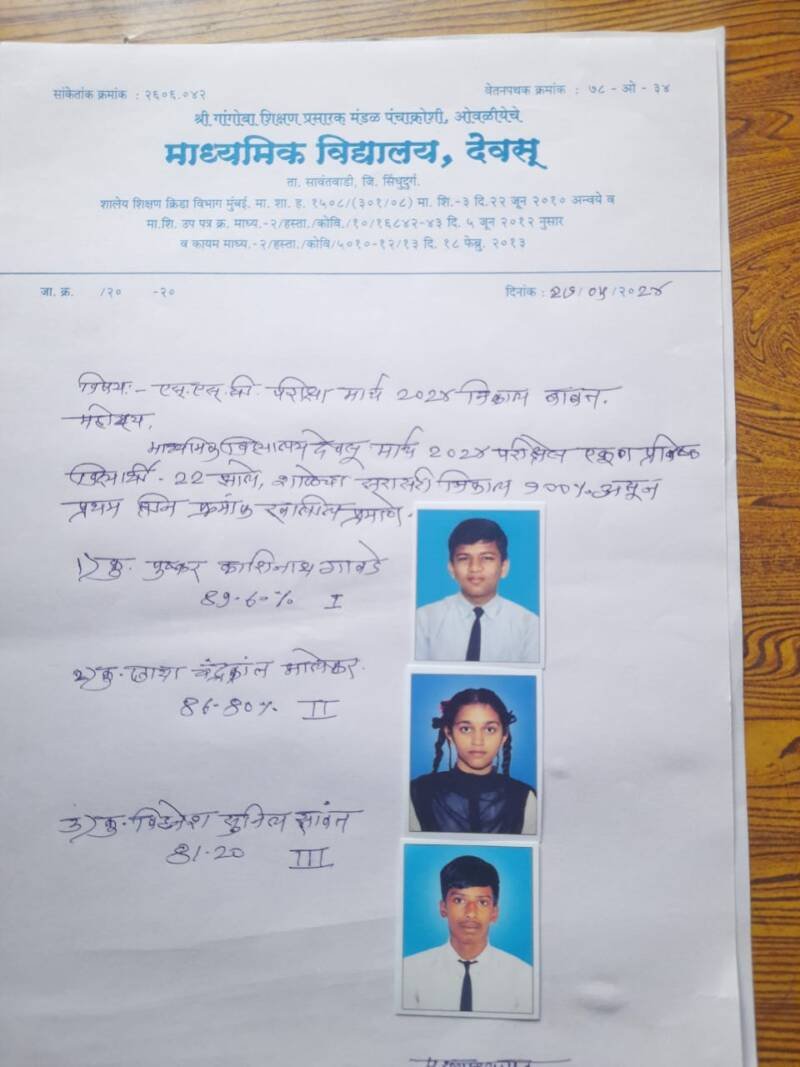 सांकेतांक क्रमांक : २६०६.०४२
वेतनपथक क्रमांक : ७८ - ओ - ३४
श्री गांगोबा शिक्षण प्रसारक मंडळ पंचाक्रोशी, ओवळीयेचे
माध्यमिक विद्यालय, देवसू
ता. सावंतवाडी, जि. सिंधुदुर्ग.
शालेय शिक्षण क्रिडा विभाग मुंबई. मा. शा. ह. १५०८/(३०१/०८) मा. शि.-३ दि.२२ जून २०१० अन्वये व
मा.शि. उप पत्र क्र. माध्य.-२/हस्ता./कोवि./१०/१६८४२-४३ दि. ५ जून २०१२ नुसार
व कायम माध्य.-२/हस्ता./कोवि/५०१०-१२/१३ दि. १८ फेब्रु. २०१३
जा. क्र. /२० -२०
दिनांक : २७/०५/२०२४
विषय:- एस्.एस्.सी. परीक्षा मार्च २०२४ निकाल बाबत.
महोदय,
माध्यमिक विद्यालय देवसू मार्च २०२४ परीक्षेस एकूण प्रविष्ठ
विद्यार्थी - 22 झाले, शाळेचा सरासरी निकाल १००% असून
प्रथम तीन क्रमांक खालील प्रमाणे.
१) कु. पुष्कर काशिनाथ गावडे
89.60% I
२) कु. छाया चंद्रकांत
86.80% II
३) कु. विघ्नेश सुनिल सावंत
81.20 III